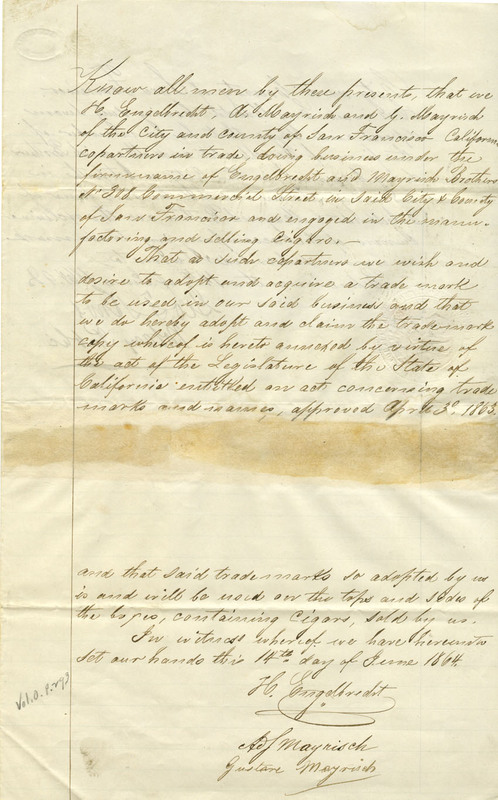 Know all men by these presents, that we
H. Engelbrecht, A. Mayrisch and G. Mayrisch
of the City and County of San Francisco California
copartners in trade, doing business under the
firm name of Engelbrecht and Mayrisch Brothers
No 318 Commercial Street in said City & County
of San Francisco and engaged in the manu-
factoring and selling Cigars.—
That as such copartners we wish and
desire to adopt and acquire a trade mark
to be used in our said business and that
we do hereby adopt and claim the trade-mark
copy whereof is hereto annexed by virtue of
the act of the Legislature of the State of
California entitled an act concerning trade
marks and names, approved April 3d, 1863.
and that said trade marks so adopted by us
is and will be used on the tops and sides of
the boxes, containing Cigars, sold by us.
In witness whereof we have hereunto
set our hands this 14th day of June 1864.
H. Engelbrecht
Adf Mayrisch
Gustave Mayrisch
Vol. 0. P. 293